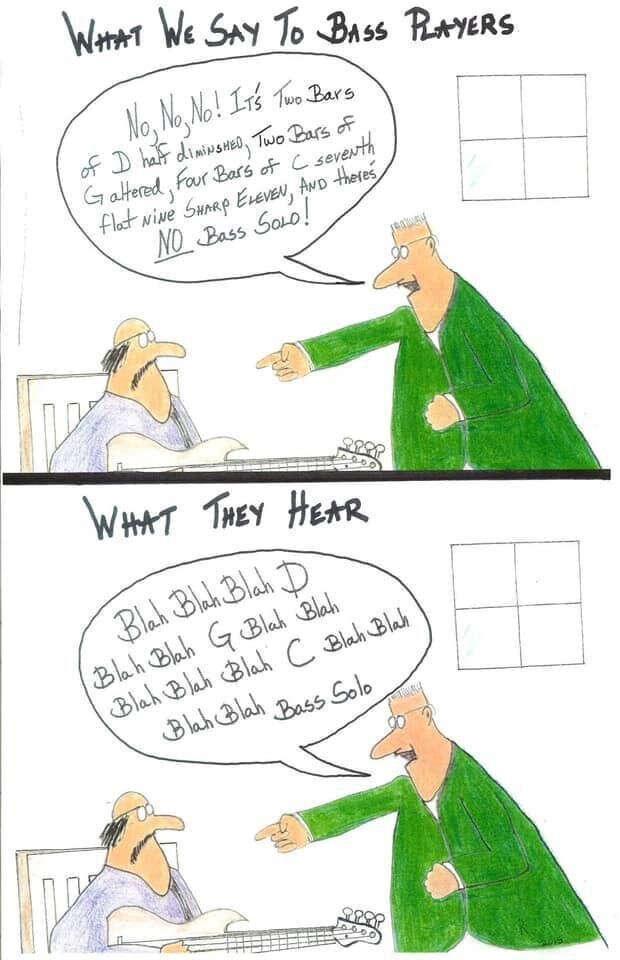 What We Say To Bass Players
No, No, No! It's Two Bars
of D half diminshed, Two Bars of
G altered, Four Bars of C seventh
flat Nine Sharp Eleven, And there's
NO Bass Solo!
What They Hear
Blah Blah Blah D
Blah Blah G Blah Blah
Blah Blah Blah C Blah Blah
Blah Blah Bass Solo